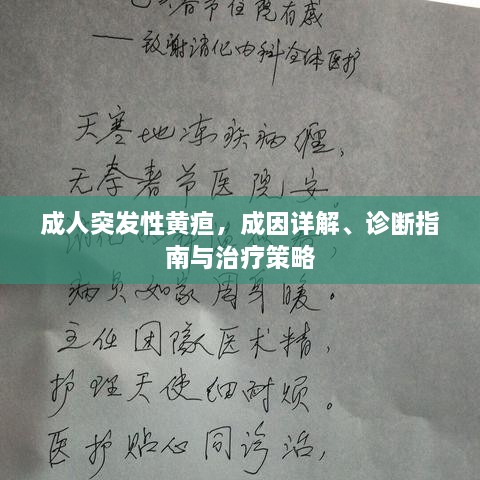 春节住院有感
——致谢消化内科全体医护
天寒地冻疾病缠，
无奈春节医院安。
成人突发性黄疸，成因详解、诊断指
南与治疗策略
病员如家周身暖。
主任团队医术精，
护理天使细耐烦。
医护贴心同诊治，